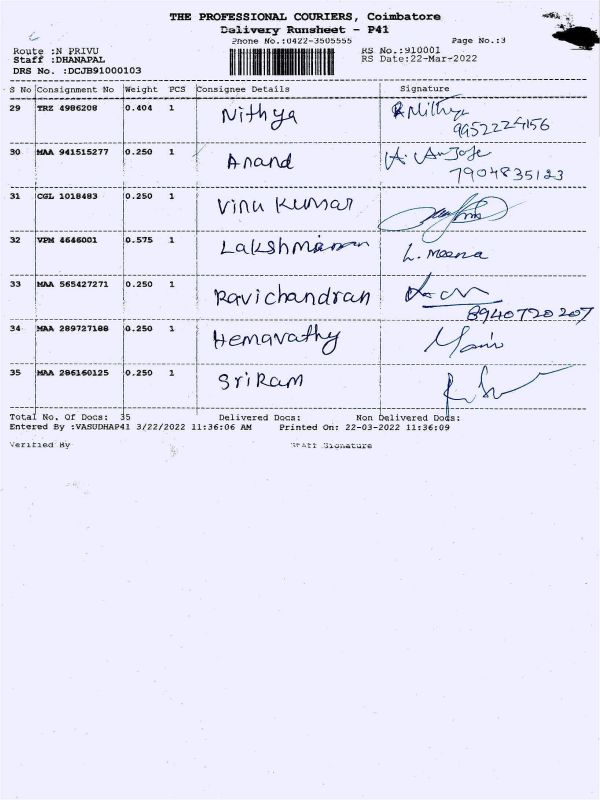 THE PROFESSIONAL COURIERS, Coimbatore
Delivery Runsheet - P41
Phone No.:0422-3505555 Page No.:3
Route :N PRIVU RS No.:910001
Staff :DHANAPAL RS Date:22-Mar-2022
DRS No. :DCJB91000103
S No Consignment No Weight PCS Consignee Details Signature
29 TRZ 4986208 0.404 1 Nithya R Nithya
9952224156
30 MAA 941515277 0.250 1 Anand
7904835123
31 CGL 1018483 0.250 1 Vinu Kumar
32 VPM 4646001 0.575 1 Lakshmanan L. Meena
33 MAA 565427271 0.250 1 Ravichandran
8940720207
34 MAA 289727188 0.250 1 Hemavathy
35 MAA 286160125 0.250 1 SriRam
Total No. Of Docs: 35 Delivered Docs: Non Delivered Docs:
Entered By :VASUDHAP41 3/22/2022 11:36:06 AM Printed On: 22-03-2022 11:36:09
Verified By Staff Signature